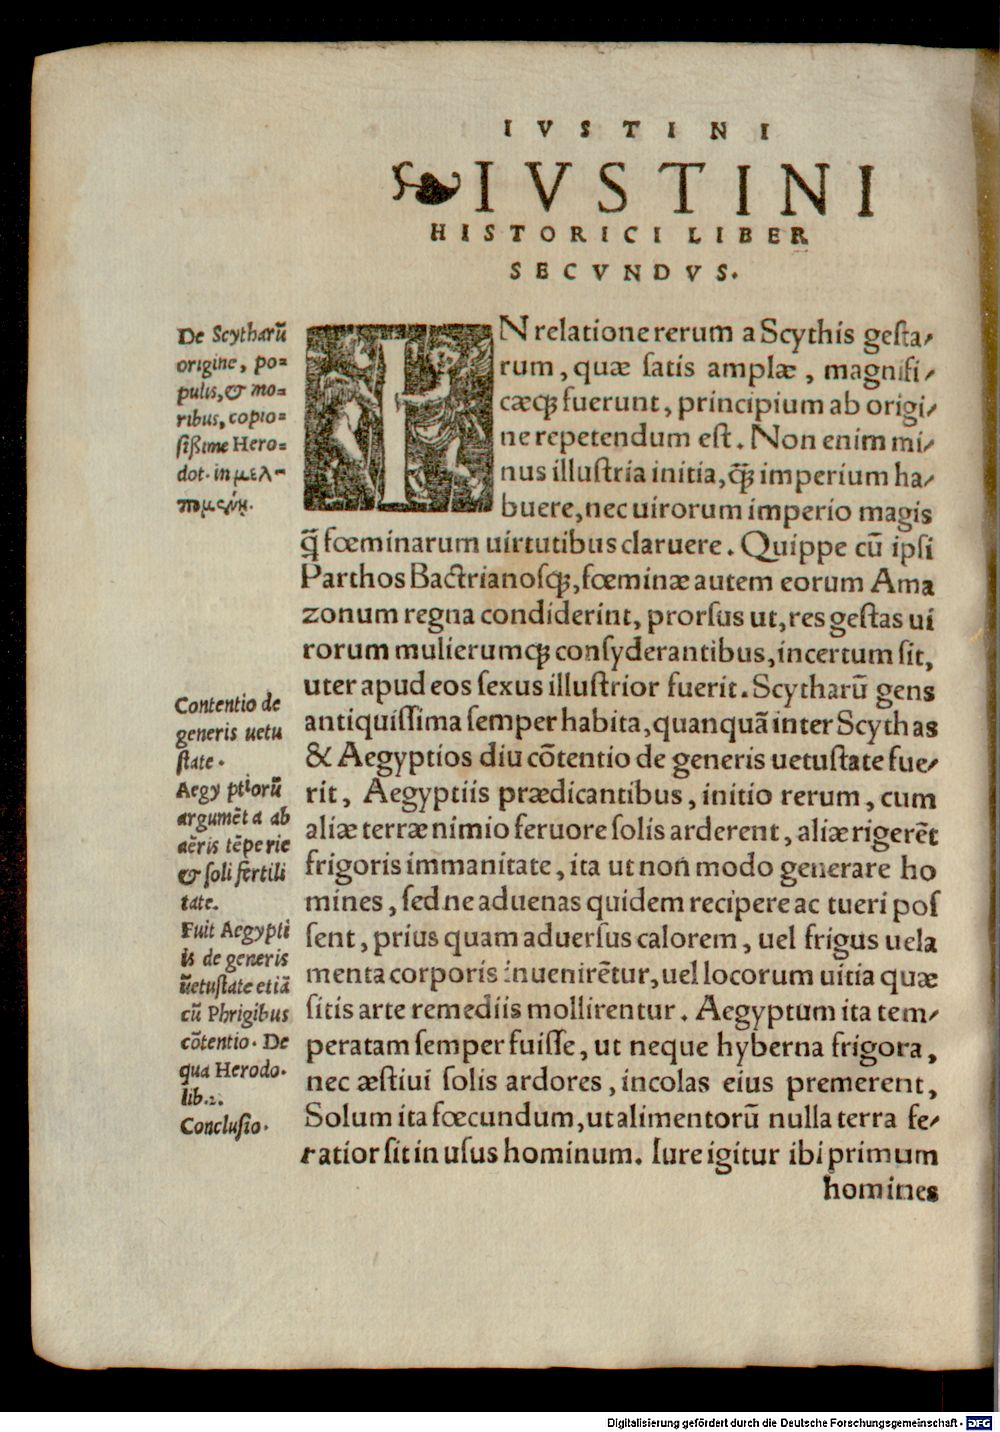 IVSTINI
IVSTINI
HISTORICI LIBER
SECVNDVS.
De Scytharũ
origine, po=
pulis, & mo=
ribus, copio=
ſiſſime Hero=
dot. in μελ-
πομένῃ.
IN relatione rerum a Scythis geſta-
rum, quæ ſatis amplæ, magnifi-
cæq; fuerunt, principium ab origi-
ne repetendum eſt. Non enim mi-
nus illuſtria initia, q̃; imperium ha-
buere, nec uirorum imperio magis
q̃ fœminarum uirtutibus claruere. Quippe cũ ipſi
Parthos Bactrianoſq;, fœminæ autem eorum Ama
zonum regna condiderint, prorſus ut, res geſtas ui
rorum mulierumq; conſyderantibus, incertum ſit,
uter apud eos ſexus illuſtrior fuerit. Scytharũ gens
antiquiſſima ſemper habita, quanquã inter Scythas
& Aegyptios diu cõtentio de generis uetuſtate fue-
rit, Aegyptiis prædicantibus, initio rerum, cum
aliæ terræ nimio feruore ſolis arderent, aliæ rigerẽt
frigoris immanitate, ita ut non modo generare ho
mines, ſed ne aduenas quidem recipere ac tueri poſ
ſent, prius quam aduerſus calorem, uel frigus uela
menta corporis inuenirẽtur, uel locorum uitia quæ
ſitis arte remediis mollirentur. Aegyptum ita tem-
peratam ſemper fuiſſe, ut neque hyberna frigora,
nec æſtiui ſolis ardores, incolas eius premerent,
Solum ita fœcundum, ut alimentorũ nulla terra fe-
ratior ſit in uſus hominum. Iure igitur ibi primum
homines
Contentio de
generis uetu
ſtate.
Aegyptiorũ
argumẽta ab
aẽris tẽperie
& ſoli fertili
tate.
Fuit Aegypti
is de generis
ũetuſtate etiã
cũ Phrigibus
cõtentio. De
qua Herodo.
lib.2.
Concluſio.
Digitalisierung gefördert durch die Deutsche Forschungsgemeinschaft - DFG